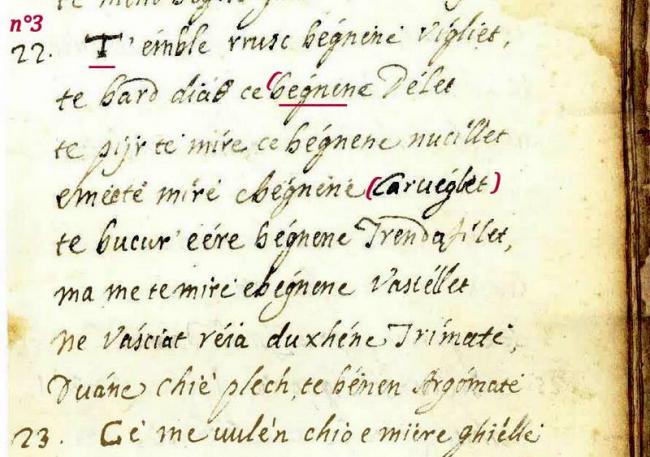 n°3
22. T'émble rrusc bégnene Vigliet,
te bard diáδ ce (bégnene Délet
te pijr te mire ce bégnene nucillet
emeete mire cbégnene (Carueglet)
te bucur' eére bégnene Trendafilet,
ma me te mire ebégnene Vastéllet
ne Vásciat réia duxhéne Trimate,
Duáne chie plech, te bénen Argómate
23. Cé me uulén chio e miére ghiélle